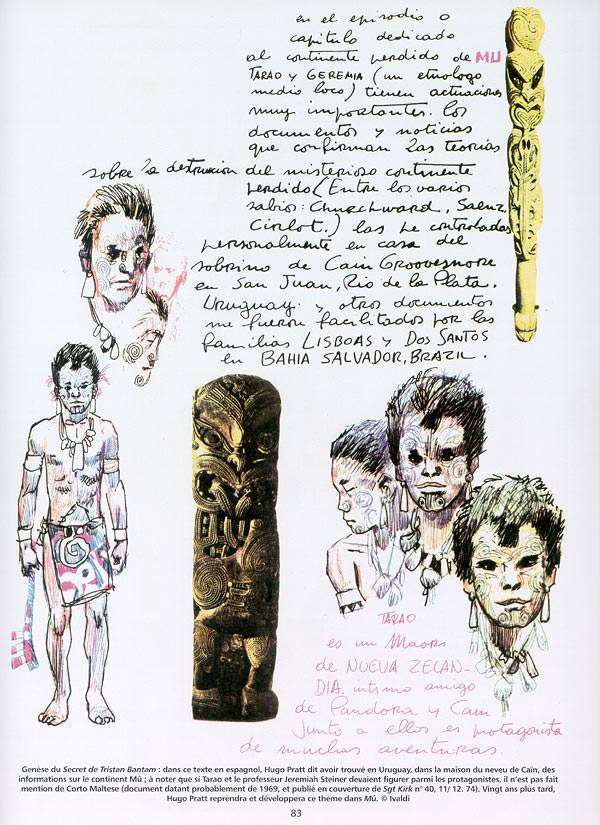 en el episodio o
capitulo dedicado
al continente perdido de MU
TARAO y GEREMIA (un etnologo
medio loco) tienen actuaciones
muy importantes. los
documentos y noticias
que confirman las teorias
sobre la destruccion del misterioso continente
perdido (Entre los varios
sabios: Churchward, Saenz,
Cirlot.) las he controladas
personalmente en casa del
sobrino de Cain Groovesnore
en San Juan, Rio de la Plata.
Uruguay. y otros documentos
me fueron facilitados por las
familias LISBOAS y DOS SANTOS
en BAHIA SALVADOR, BRAZIL.
TARAO
es un Maori
de NUEVA ZELAN-
DIA. intimo amigo
de Pandora y Cain
Junto a ellos es protagonista
de muchas aventuras.
Genèse du Secret de Tristan Bantam : dans ce texte en espagnol, Hugo Pratt dit avoir trouvé en Uruguay, dans la maison du neveu de Caïn, des
informations sur le continent Mû ; à noter que si Tarao et le professeur Jeremiah Steiner devaient figurer parmi les protagonistes, il n'est pas fait
mention de Corto Maltese (document datant probablement de 1969, et publié en couverture de Sgt Kirk n° 40, 11/ 12. 74). Vingt ans plus tard,
Hugo Pratt reprendra et développera ce thème dans Mû. © Ivaldi
83